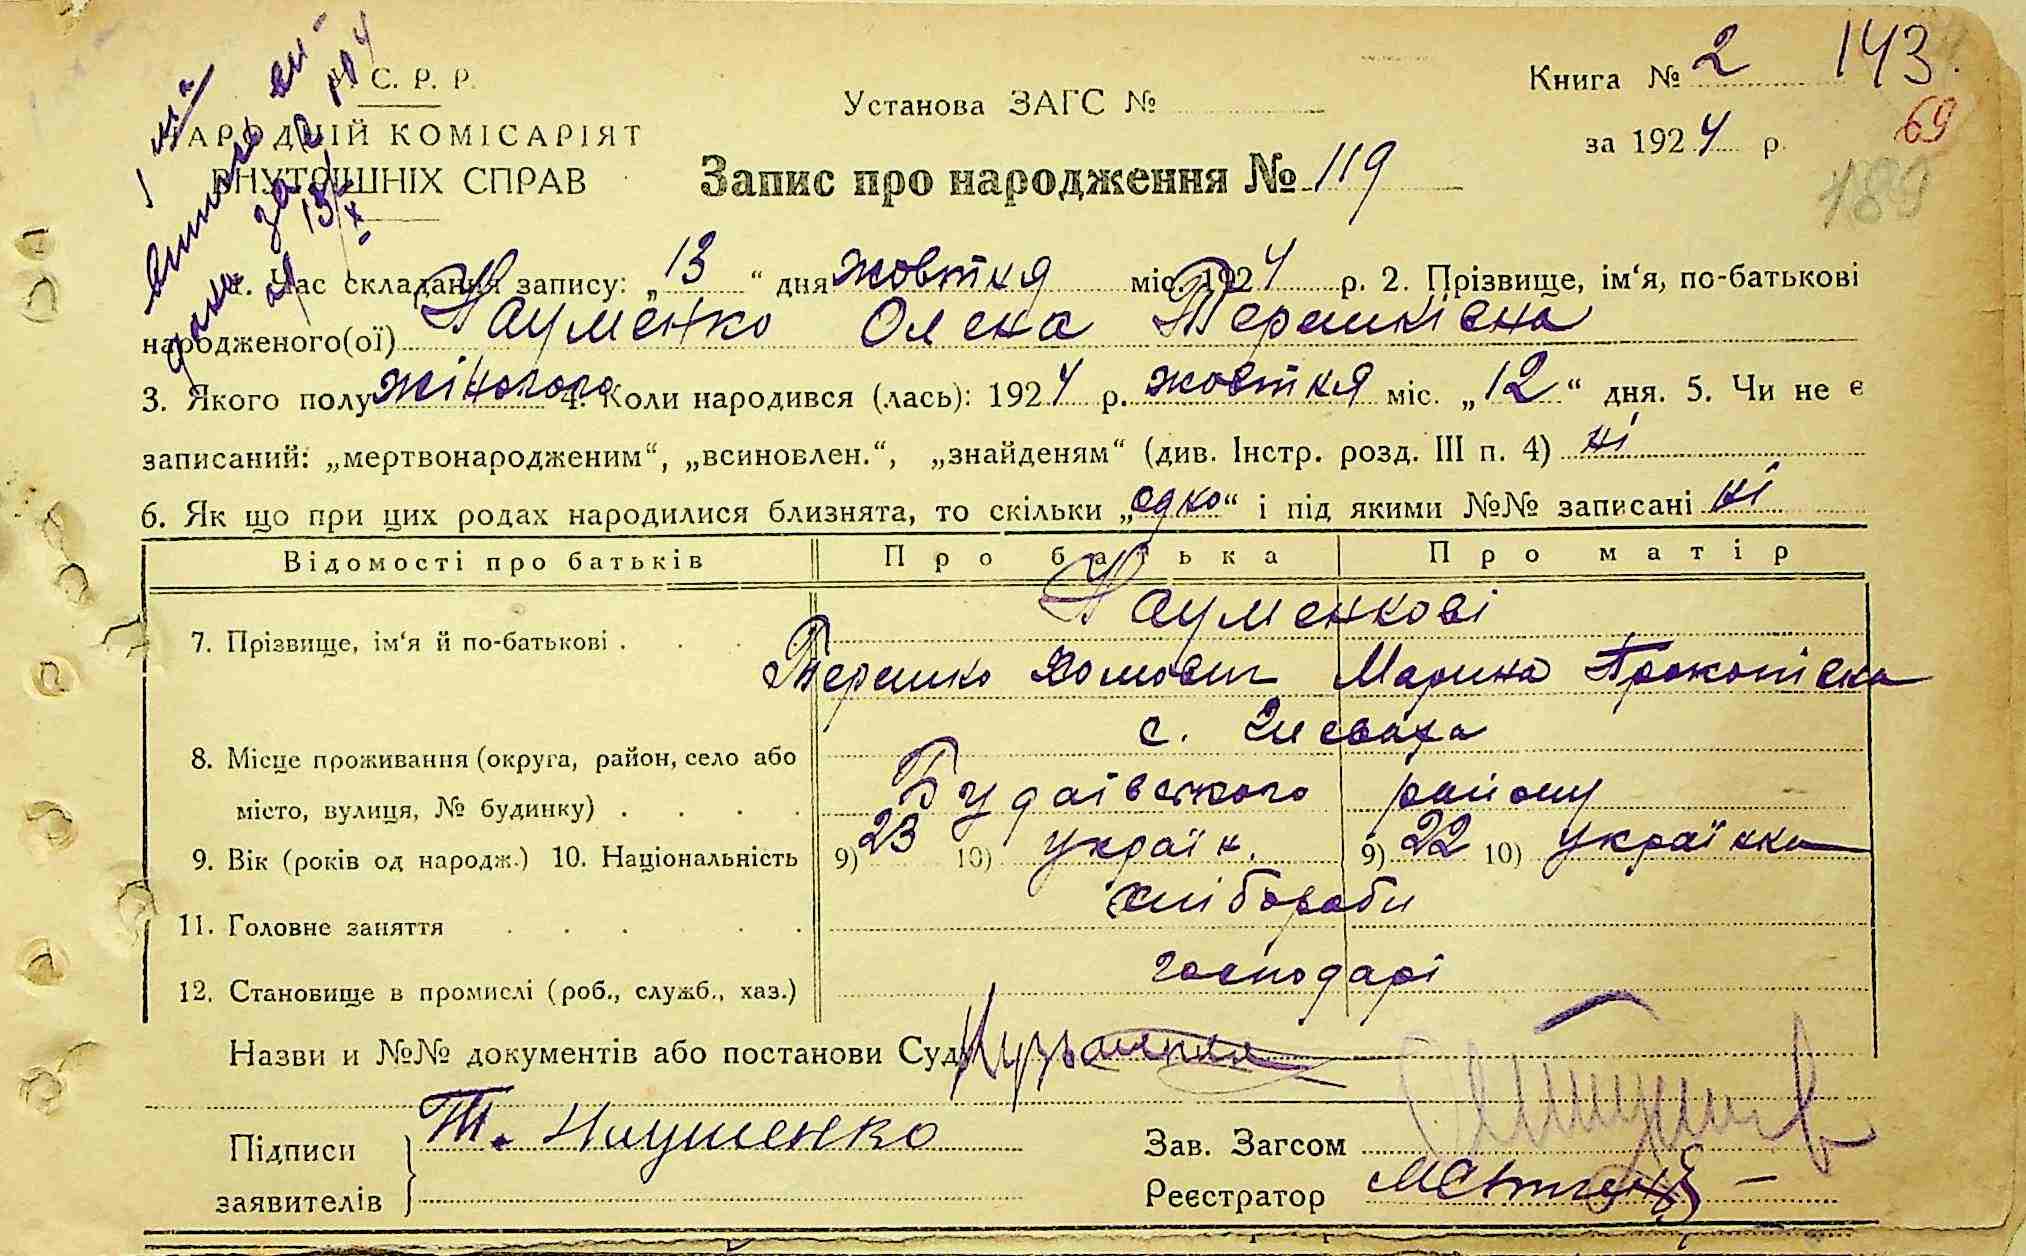 С. Р. Р.
Книга № 2 143
Установа ЗАГС №
69
АРОДНІЙ КОМІСАРІЯТ
за 1924 р.
ВНУТРІШНІХ СПРАВ
Запис про народження № 119
189
1. Час складання запису: „13“ дня жовтня міс. 1924 р. 2. Прізвище, ім‘я, по-батькові
народженого(ої) Науменко Олена Терешківна
3. Якого полу жіночого 4. Коли народився (лась): 1924 р. жовтня міс. „12“ дня. 5. Чи не є
записаний: „мертвонародженим“, „всиновлен.“, „знайденям“ (див. Інстр. розд. III п. 4) ні
6. Як що при цих родах народилися близнята, то скільки „одно“ і під якими №№ записані ні
Відомості про батьків Про батька Про матір
Науменкові
7. Прізвище, ім‘я й по-батькові
Терешко Хомович Марина Прокопівна
с. Глеваха
8. Місце проживання (округа, район, село або
місто, вулиця, № будинку) Будаівського району
9. Вік (років од народж.) 10. Національність 9) 23 10) Україн. 9) 22 10) Українка
11. Головне заняття хлібороби
12. Становище в промислі (роб., служб., хаз.) господарі
Назви и №№ документів або постанови Суд
Підписи Т. Науменко
Зав. Загсом
заявителів
Реєстратор